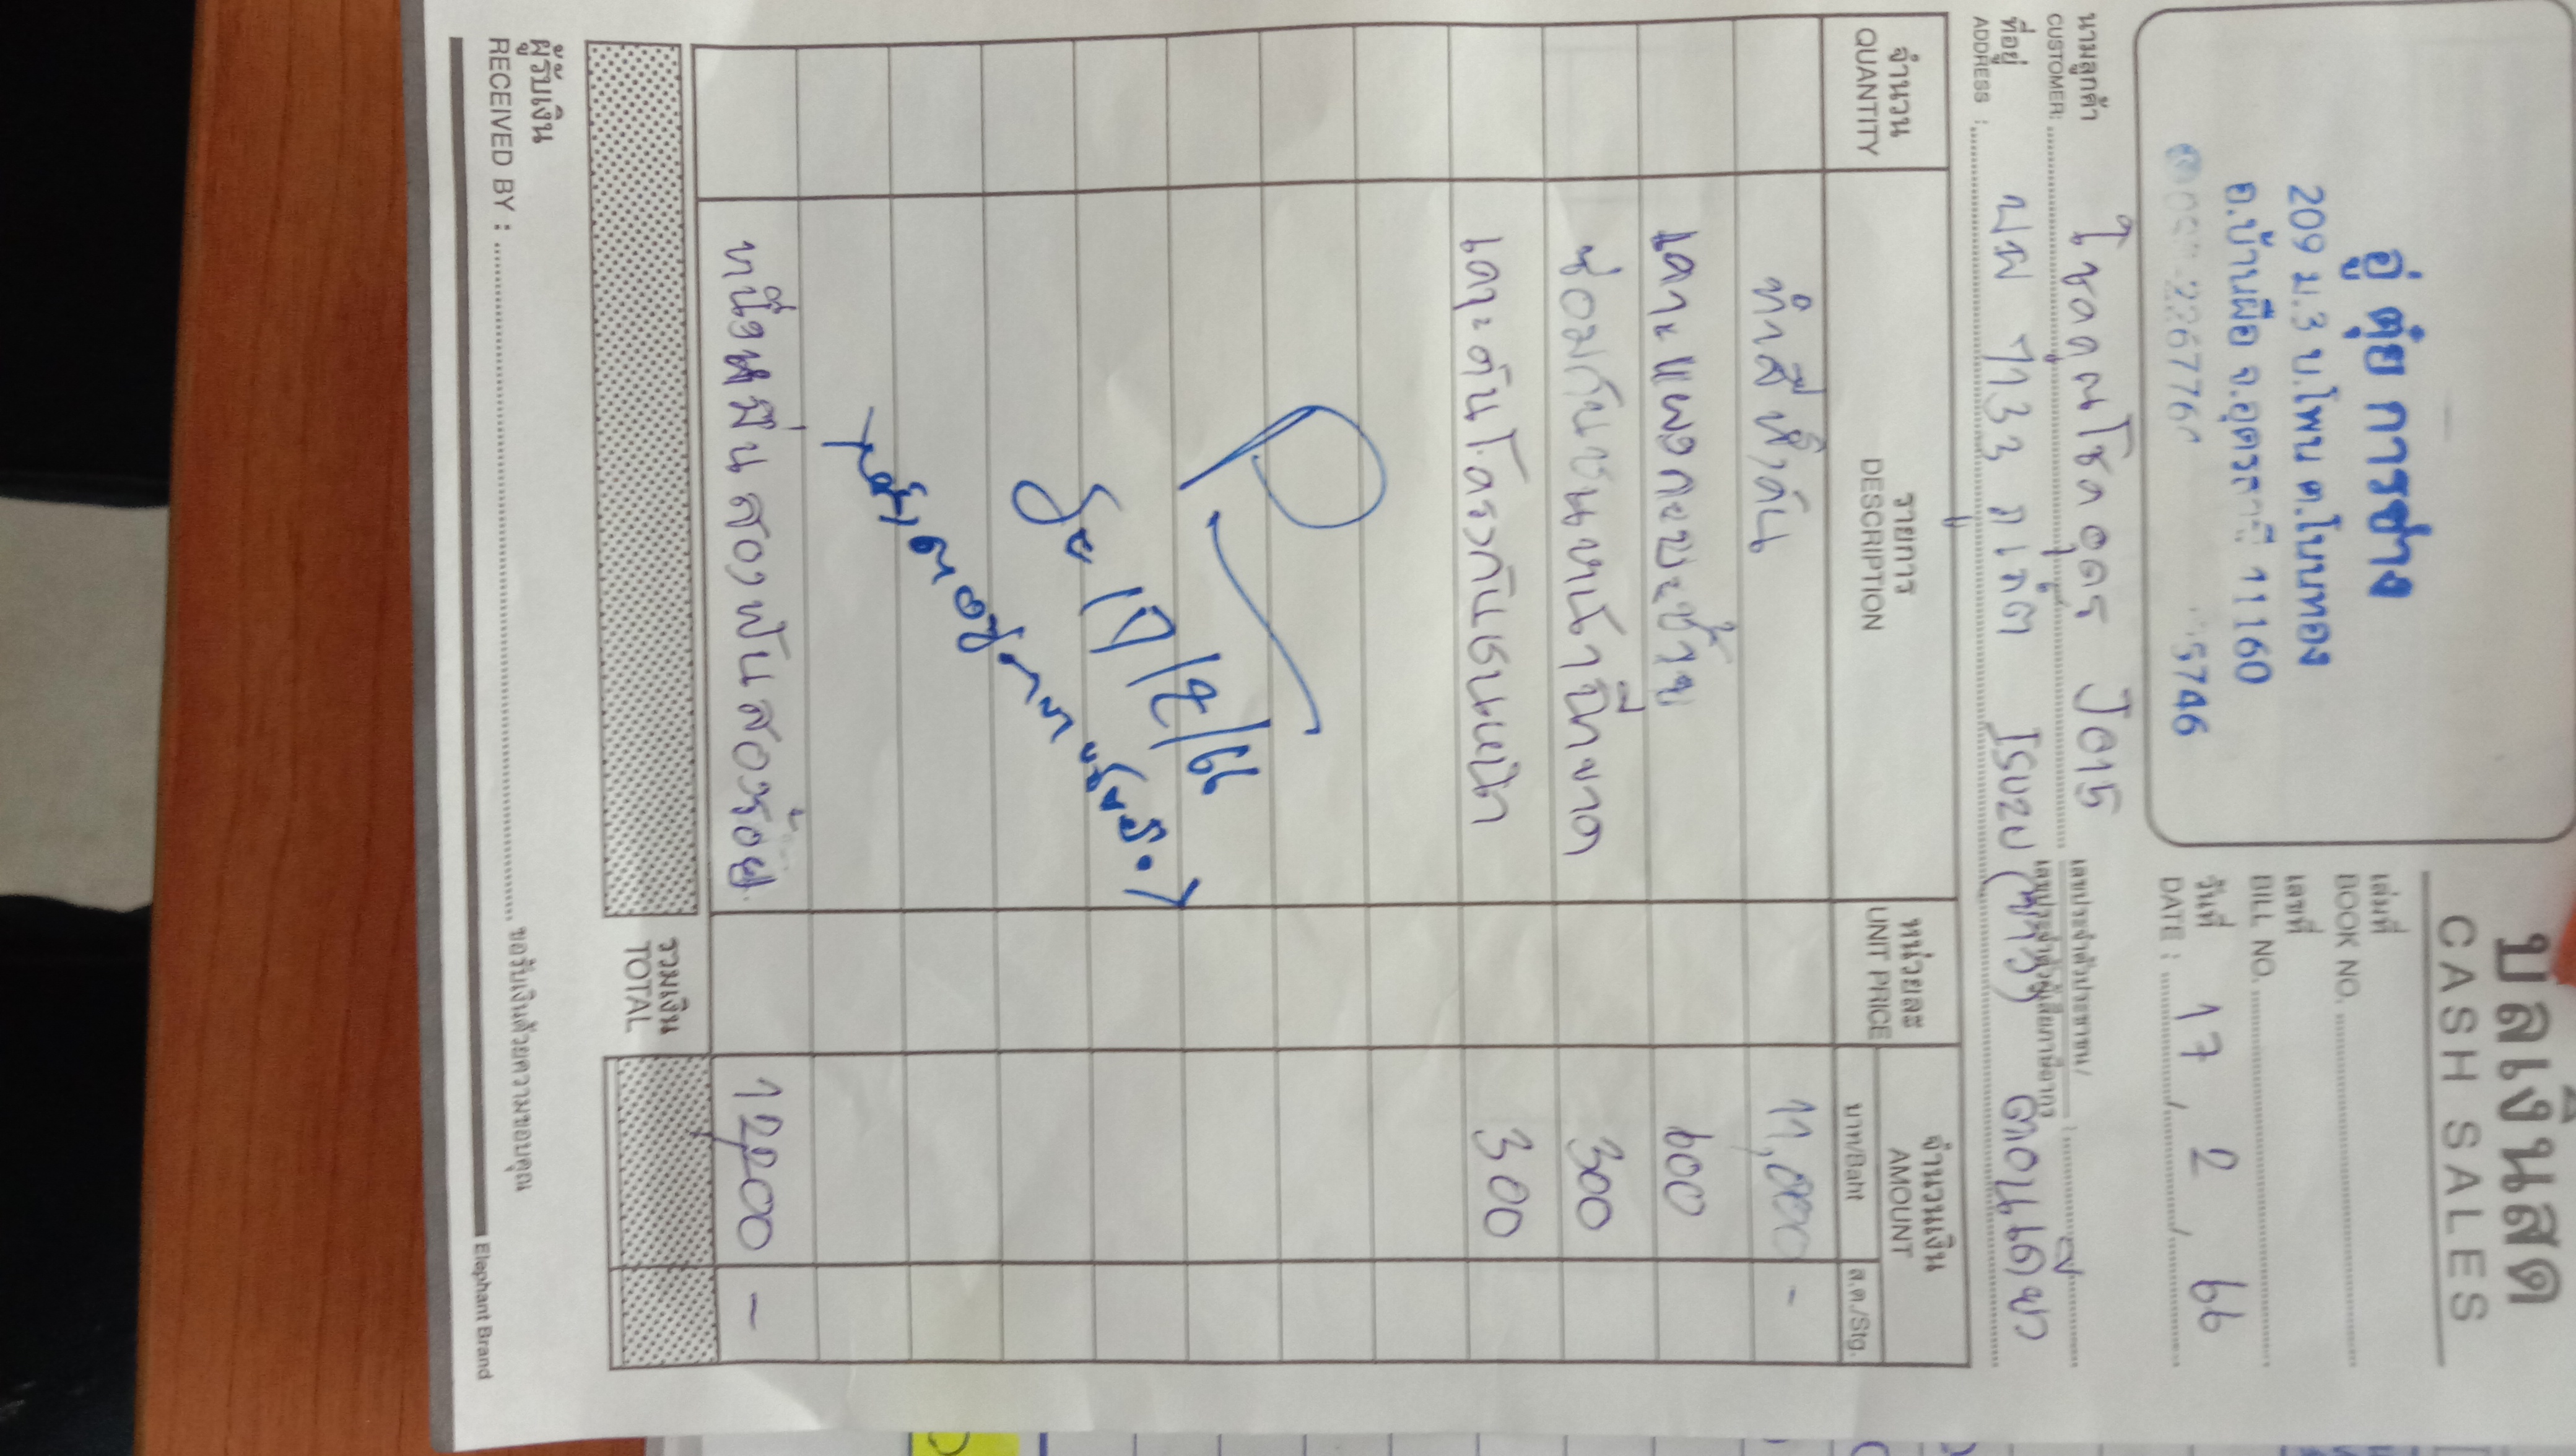 บิลเงินสด
CASH SALES
อู่ ตุ๋ย การช่าง
209 ม.3 บ.โพน ต.โนนทอง
อ.บ้านผือ จ.อุดรธานี 41160
เล่มที่
BOOK NO.
เลขที่
BILL NO.
วันที่
DATE : 17 / 2 / 66
นามลูกค้า
CUSTOMER: โชคคูณโชคอุดร 2015
เลขประจำตัวประชาชน/
เลขประจำตัวผู้เสียภาษีอากร
ที่อยู่
ADDRESS : บผ 7133 ภูเก็ต ISUZU (ขาว) ตอนเดียว
จำนวน QUANTITY รายการ DESCRIPTION หน่วยละ UNIT PRICE จำนวนเงิน AMOUNT
บาท/Baht ส.ต./Stg.
ทำสีทั้งคัน 11,000 -
เคาะแผงกะบะซ้าย 600
ซ่อมกันชนหน้าฉีกขาด 300
เคาะดันโครงกันชนหน้า 300
17/2/66
หนึ่งหมื่นสองพันสองร้อย 12200 -
รวมเงิน
TOTAL
ผู้รับเงิน
RECEIVED BY : ขอรับเงินด้วยความขอบคุณ
Elephant Brand